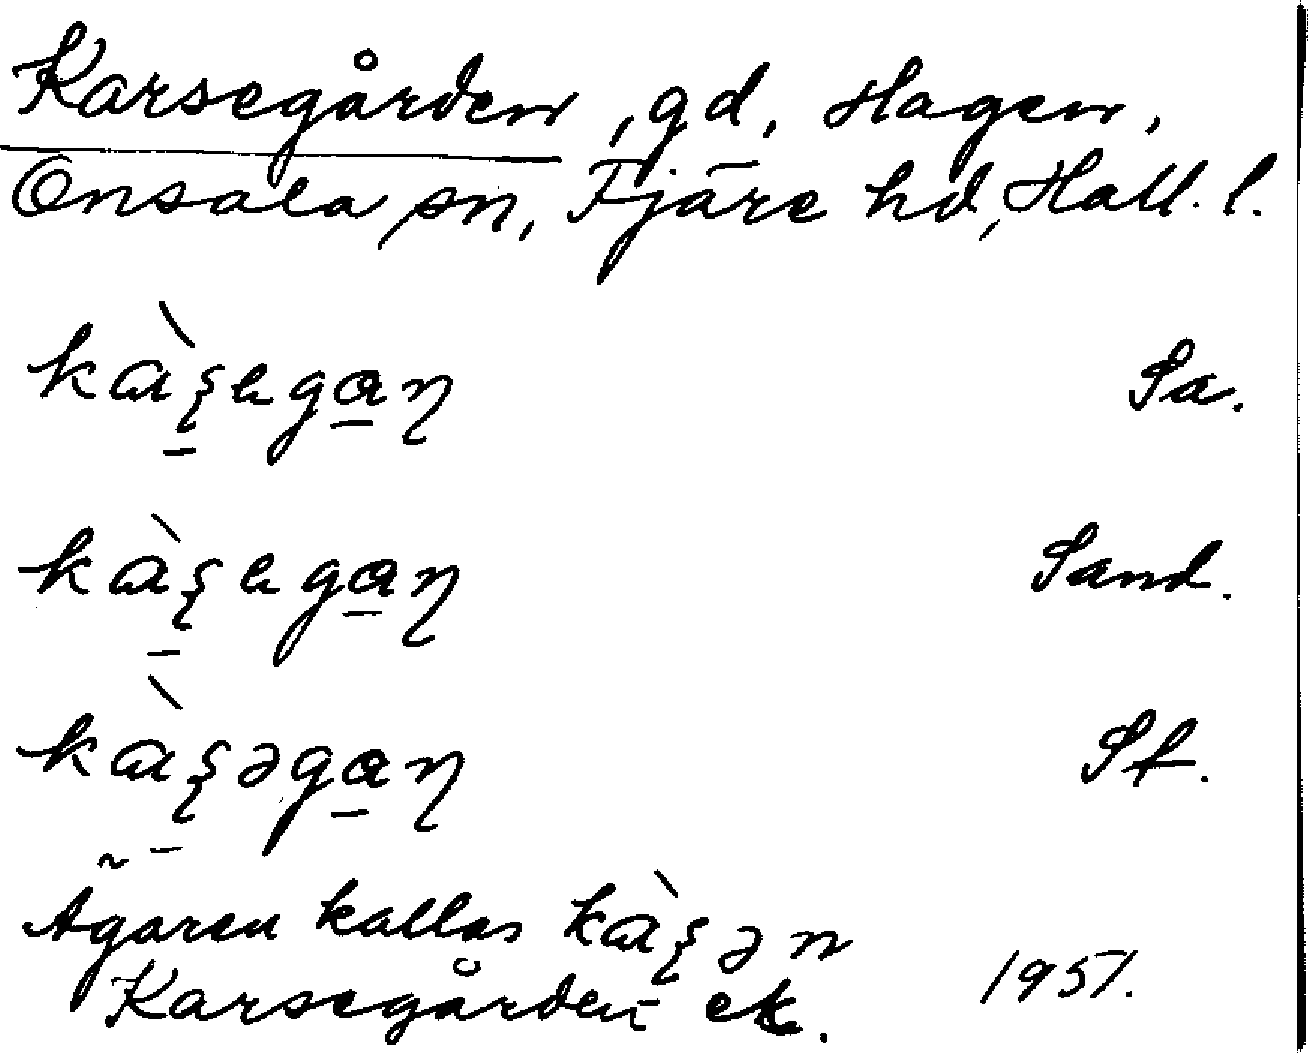 Karsegården, gd, Hagen,
Onsala sn, Fjäre hd, Hall. l.
kàʂegaɳ Sa.
kàʂegaɳ Sand.
kàʂəgaɳ Sf.
Ägaren kallas kàʂən
Karsegården ek. 1951.